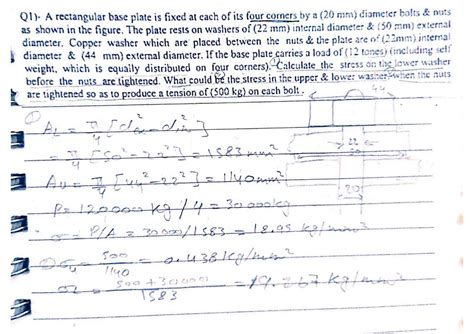 Q1)- A rectangular base plate is fixed at each of its four corners by a (20 mm) diameter bolts & nuts
as shown in the figure. The plate rests on washers of (22 mm) internal diameter & (50 mm) external
diameter. Copper washer which are placed between the nuts & the plate are of (22mm) internal
diameter & (44 mm) external diameter. If the base plate carries a load of (12 tones) (including self
weight, which is equally distributed on four corners). Calculate the stress on the lower washer
before the nuts are tightened. What could be the stress in the upper & lower washer when the nuts
are tightened so as to produce a tension of (500 kg) on each bolt.
44
AL = π/4 [d²o - d²in]
= π/4 [50² - 22²] = 1583 mm²
22
50
Au = π/4 [44² - 22²] = 1140 mm²
20
P = 120000 kg / 4 = 30000 kg
σ = P/A = 30000/1583 = 18.95 kg/mm²
= 500/1140 = 0.438 kg/mm²
= 500+30000/1583 = 19.267 kg/mm²